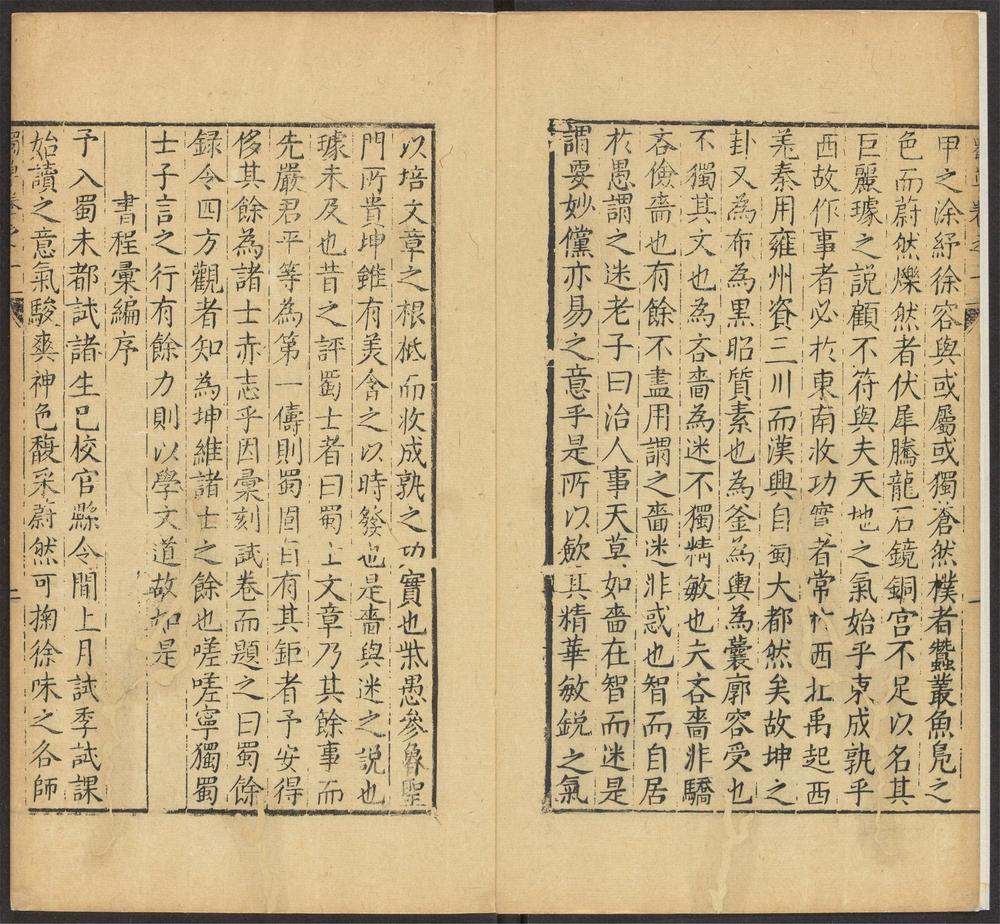 甲之涂紓徐容與或屬或獨蒼然樸者蠶叢魚鳧之
色而蔚然爍然者伏犀騰龍石鏡銅宮不足以名其
巨麗璩之說顧不符與夫天地之氣始乎東成孰乎
西故作事者必於東南收功實者常於西北禹起西
羌秦用雍州資三川而漢興自蜀大都然矣故坤之
卦又為布為黑昭質素也為釜為輿為囊廓容受也
不獨其文也為吝嗇為迷不獨精敏也夫吝嗇非驕
吝儉嗇也有餘不盡用謂之嗇迷非惑也智而自居
於愚謂之迷老子曰治人事天莫如嗇在智而迷是
謂要妙儻亦易之意乎是所以歛其精華敏鋭之氣
以培文章之根柢而收成孰之功實也柴愚參魯聖
門所貴坤雖有美含之以時發也是嗇與迷之說也
璩未及也昔之評蜀士者曰蜀士文章乃其餘事而
先嚴君平等為第一儔則蜀固自有其鉅者予安得
侈其餘為諸士赤志乎因彙刻試卷而題之曰蜀餘
録令四方觀者知為坤維諸士之餘也嗟嗟寧獨蜀
士子言之行有餘力則以學文道故如是
書程彙編序
予入蜀未都試諸生已校官縣令間上月試季試課
始讀之意氣駿爽神色馥采蔚然可掬徐味之各師